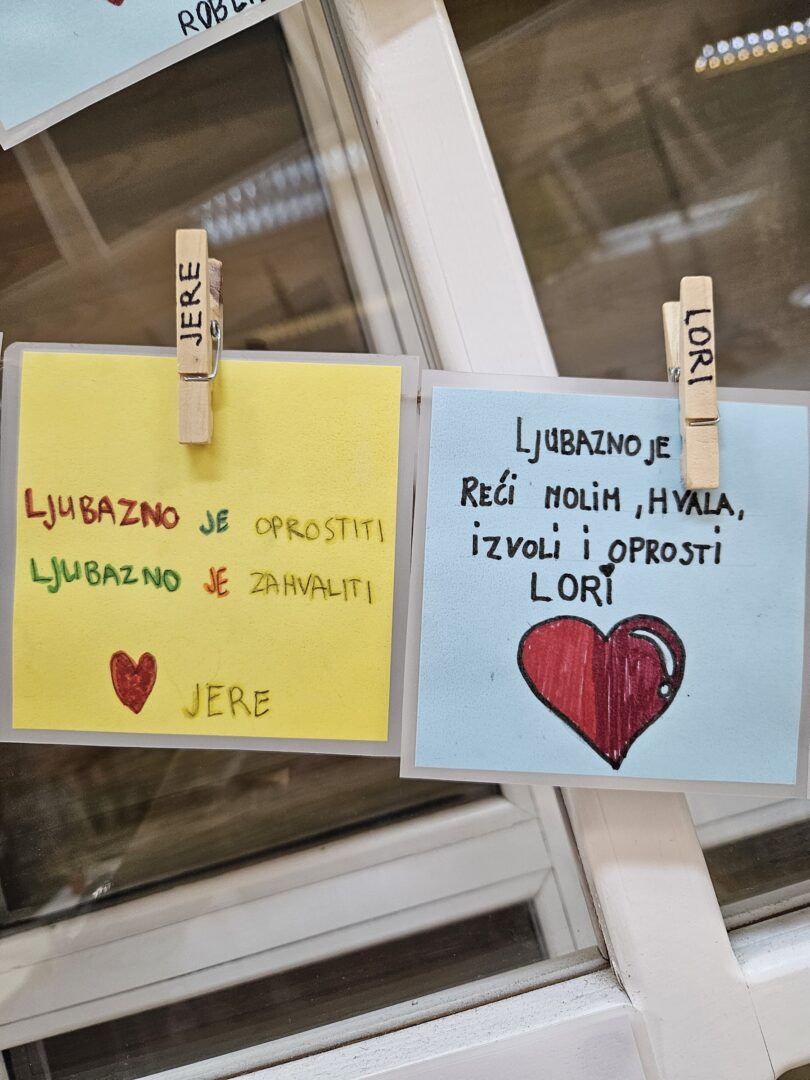 JERE
LJUBAZNO JE OPROSTITI
LJUBAZNO JE ZAHVALITI
JERE
LORI
LJUBAZNO JE
REĆI MOLIM , HVALA,
IZVOLI I OPROSTI
LORI